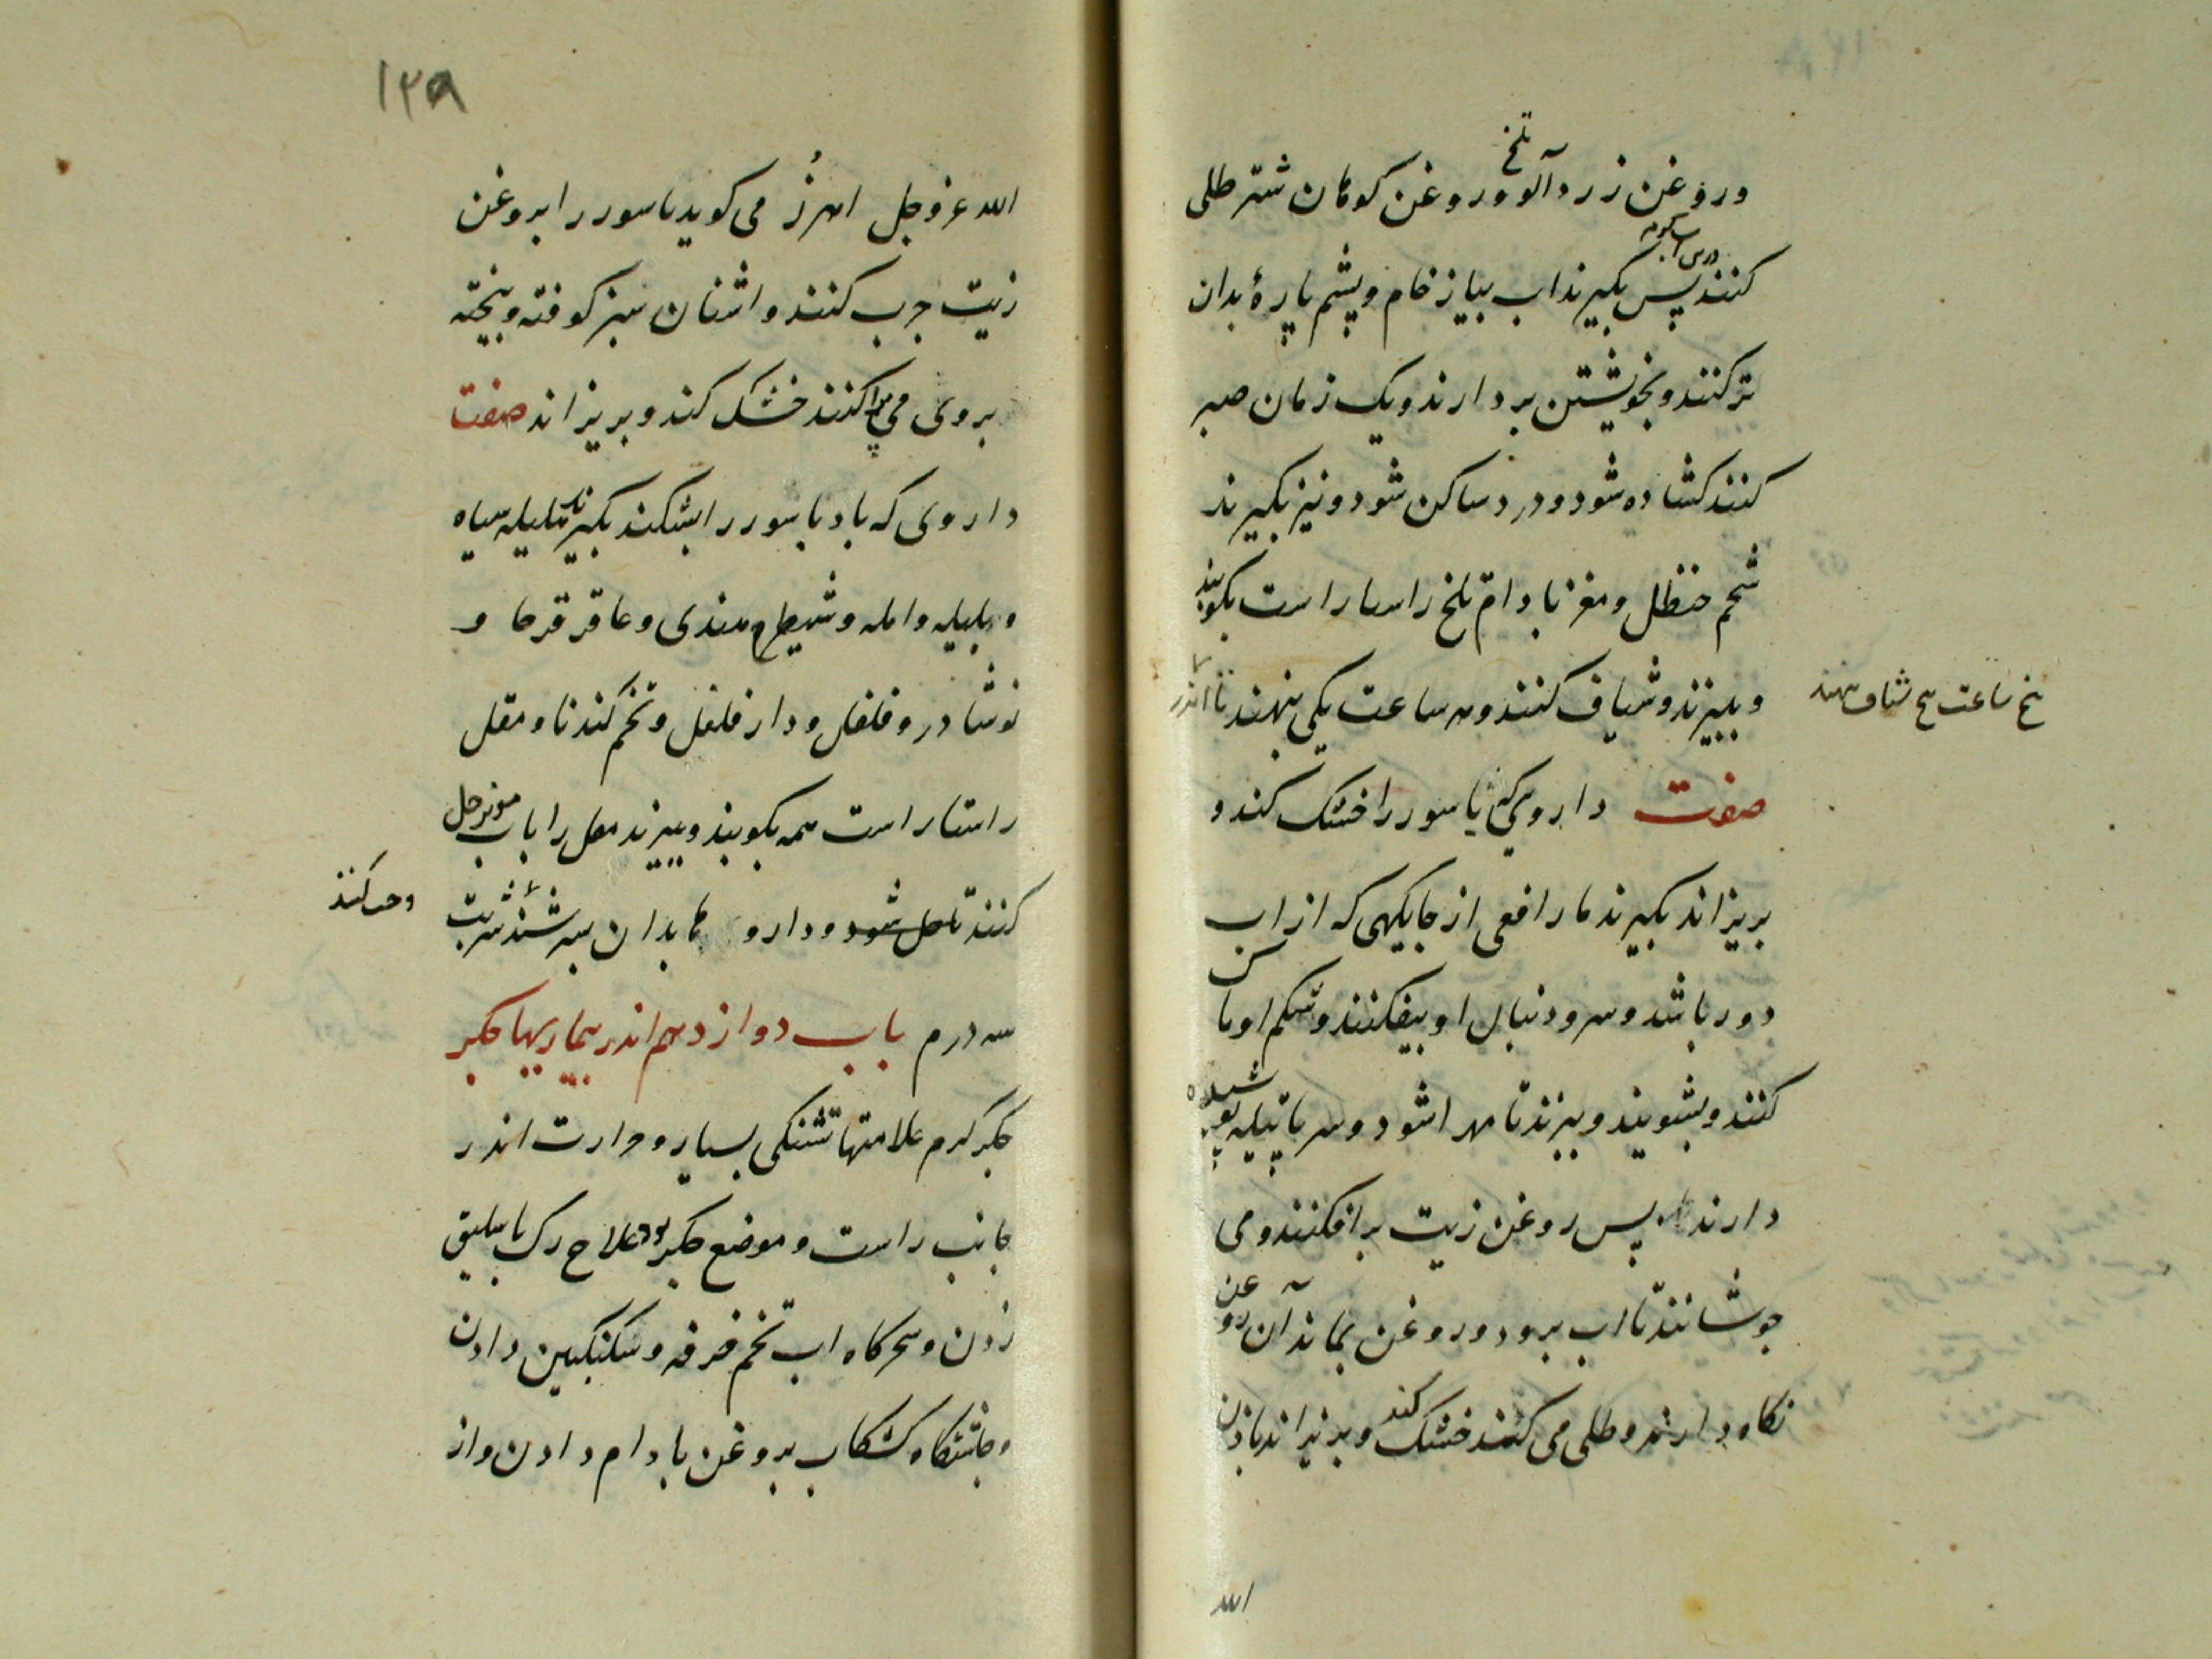 وروغن زردآلو تلخ وروغن کوهان شتر طلی
کنند پس بگیرند اب پیاز خام و پشم پارهٔ بدان
تر کنند و بخویشتن بردارند و یک زمان صبر
کنند کشاده شود و درد ساکن شود و نیز بگیرند
شحم حنظل و مغز بادام تلخ راستاراست بکوبند
و ببیزند و شیاف کنند و سه ساعت یکی بنهند تا اندر
صفت داروی کی باسور را خشک کند و
بریزاند بگیرند مار افعی از جایکهی که از اب
دور باشد و سر و دنبال او بیفکنند و شکم او پاک
کنند و بشویند و بپزند تا مهرا شود و سر پاتیله پوشیده
دارند پس روغن زیت برافکنند و می
جوشانند تا اب برود و روغن بماند آن روغن
نکاه دارند و طلی می کنند خشک کند و بریزاند باذن
الله
۱۲۹
الله عزوجل اهرن می کوید باسور را بروغن
زیت چرب کنند و اشنان سبز کوفته و بیخته
بروی می پراکنند خشک کند و بریزاند صفت
داروی که باد باسور را بشکند بگیرند هلیله سیاه
و بلیله و امله و شیطرج هندی و عاقرقرحا و
نوشادر و فلفل و دارفلفل و تخم کندنا و مقل
راستاراست همه بکوبند و ببیزند مقل را باب مویز حل
کنند تا حل شود و دارو ها بدان بسرشند شربت
سه درم باب دوازدهم اندر بیماریهاء جکر
جکر کرم علامتها تشنکی بسیار و حرارت اندر
جانب راست و موضع جکر بود علاج رک باسلیق
زدن و سحرکاه اب تخم خرفه و سکنکبین دادن
و چاشتکاه کشکاب بروغن بادام دادن و از